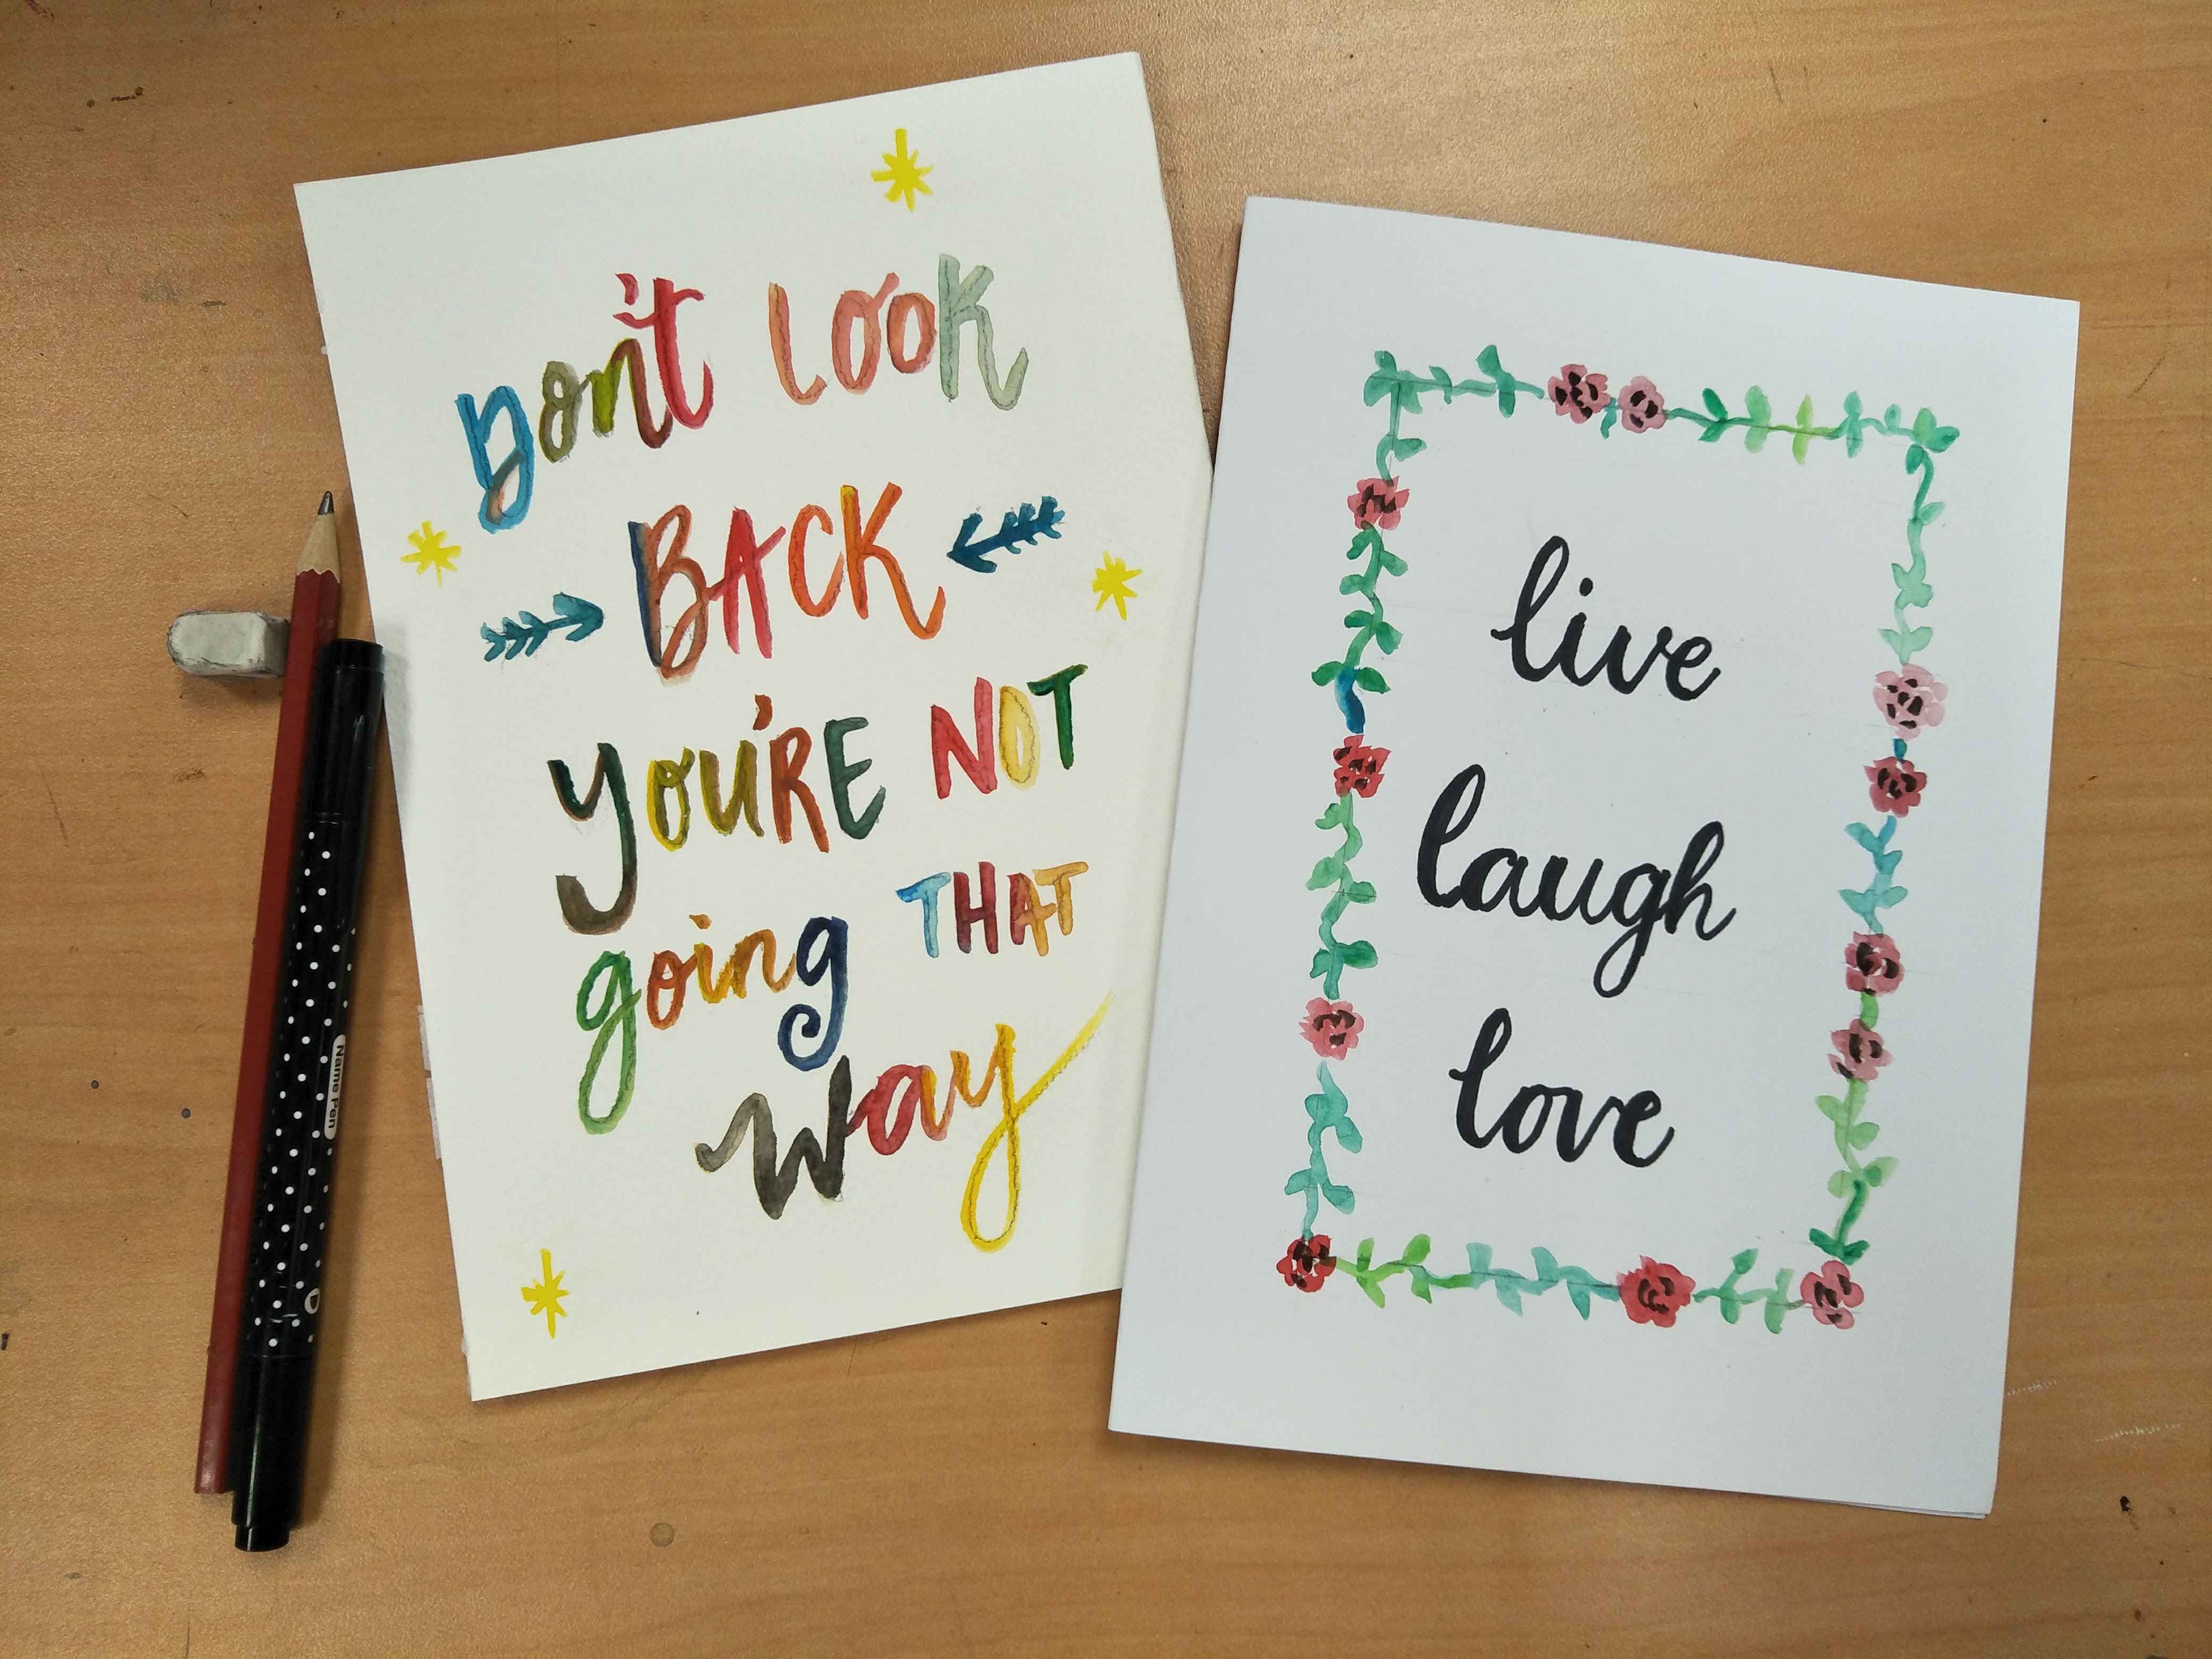 Don't LOOK
BACK
YOU'RE NOT
going THAT
way
live
laugh
love
Name Pen